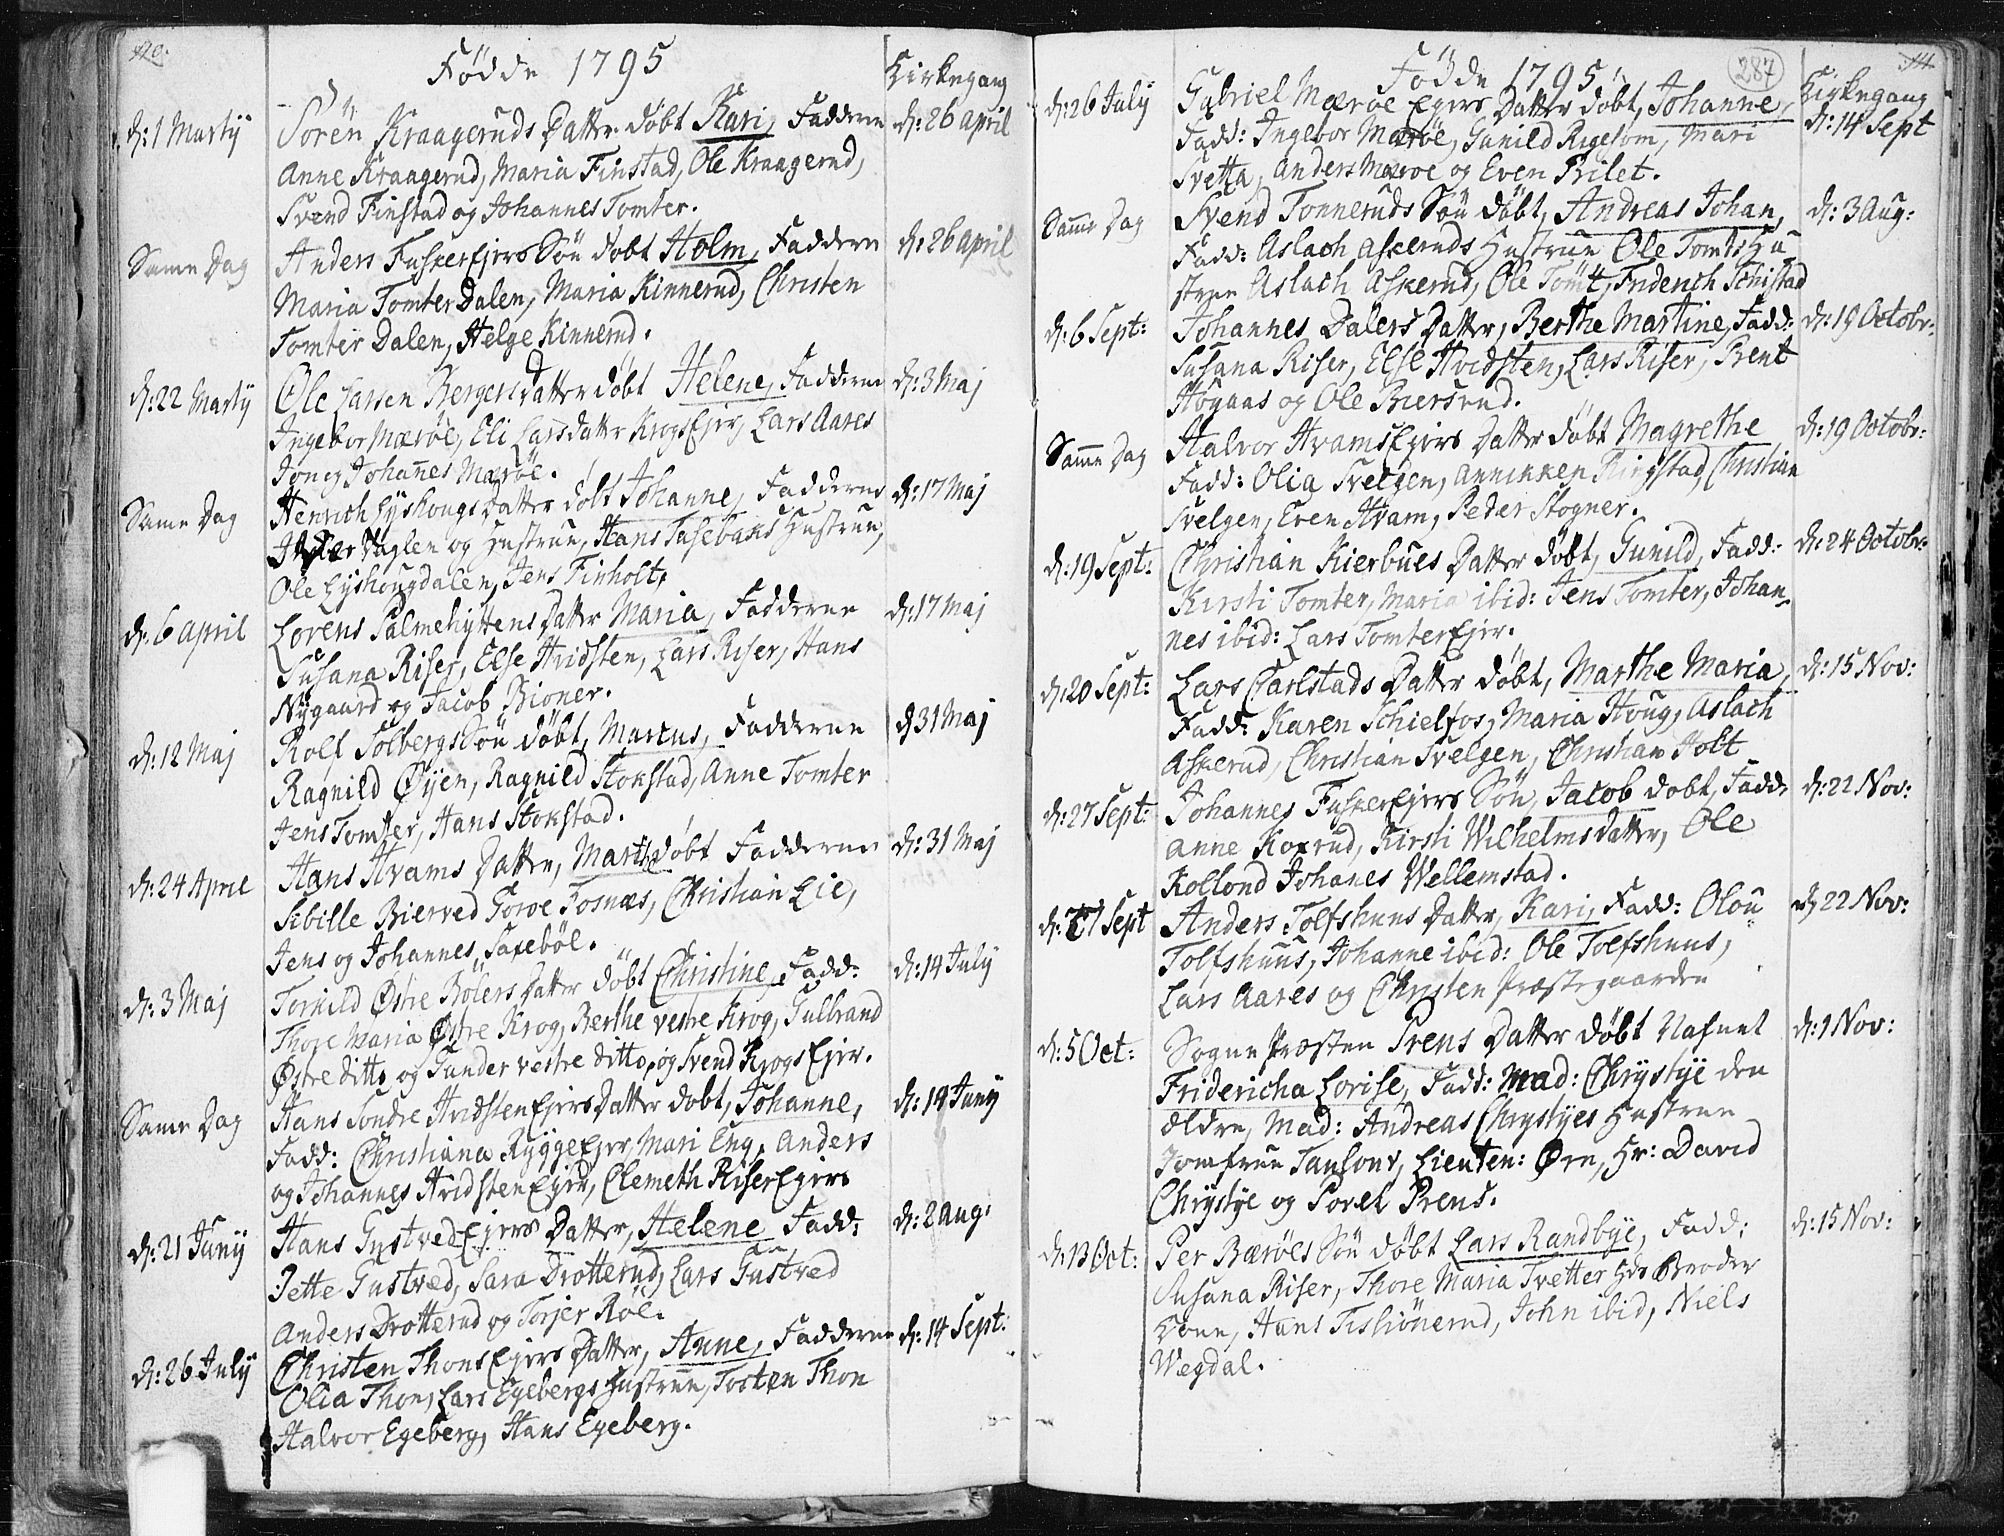 110.
Födde 1795
Kirkegang
d: 1 Martij
Sören Kraageruds Datter döbt Kari, Faddere
d: 26 april
Anne Kraagerud, Maria Finstad, Ole Kraagerud,
Svend Finstad og Johannes Tomter.
Same Dag
Anders Fusker Ejers Sön döbt Holm, Faddere
d: 26 april
Maria Tomter Dalen, Maria Kinnerud, Christen
Tomter Dalen, Helge Kinnerud.
d: 22 Martij
Ole Larsen Bergers Datter döbt Helene, Faddere
d: 3 Maj
Ingebor Mæröe, Eli Larsdatter Krogs Ejer, Lars Aares
Jon og Johanes Mæröe.
Same Dag
Henrich Lyshougs Datter döbt Johanne, Faddere
d: 17 Maj
Haglen og Hustrue, Hans Hustrue,
Ole Lyshougdalen, Jens Finholt,
d: 6 april
Lorens Palmehyttens Datter Maria, Faddere
d: 17 Maj
Susana Riser, Else Hvidsten, Lars Riser, Hans
Nygaard og Jacob Bioner.
d: 12 Maj
Rolf Solbergs Sön döbt, Marcus, Faddere
d 31 Maj
Ragnild Øyen, Ragnild Stokstad, Anne Tomter
Jens Tomter, Hans Stokstad.
d: 24 April
Hans Hvams Datter, Marthe döbt Faddere
d: 31 Maj
Sibille Bierved Torve Fosnæs, Christian Lie,
Jens og Johannes Saxeböl.
d: 3 Maj
Torkild Østre Röiers Datter döbt Christine, Fadd:
d: 14 July
Thore Maria Østre Krog, Berthe vestre Krog, Gulbrand
Østre ditto og Gunder vestre ditto, og Svend Krogs Ejer.
Same Dag
Hans Söndre Hvidsten Ejers Datter döbt, Johanne,
d: 14 Juny
Fadd: Christiana Rygge Ejer, Mari Eng, Anders
og Johannes Hvidsten Ejer, Clemeth Riser Ejer
d: 21 Juny
Hans Gustved Ejers Datter, Helene Fadd:
d: 2 Aug:
Jette Gustved, Sara Drotterud, Lars Gustved
Anders Drotterud og Torjer Röe.
d: 26 July
Christen Thons Ejers Datter, Anne, Faddere
d: 14 Sept:
Olia Thon, Lars Egebergs Hustrue, Torsten Thon
Halvor Egeberg, Hans Egeberg.
Födde 1795
287
111.
Kirkegang
d: 26 July
Gabriel Mæröe Ejers Datter döbt, Johanne,
d: 14 Sept
Fadd: Ingebor Mæröe, Gunild Rigelsom, Mari
Svetta, Anders Mæröe og Even Bilet.
Same Dag
Svend Tonneruds Sön döbt, Andreas Johan,
d: 3 Aug:
Fadd: Aslach Askeruds Hustrue Ole Tomts Hu
strue Aslach Askerud, Ole Tomt, Friderich Schistad
d: 6 Sept:
Johannes Dalers Datter, Berthe Martine, Fadd:
d: 19 Octobr:
Susana Riser, Else Hvidsten, Lars Riser, Brent
Hougaas og Ole Biersrud.
Same Dag
Halvor Hvams Ejers Datter döbt Magrethe
d: 19 Octobr:
Fadd: Olia Svelgen, Anniken Ringstad, Christian
Svelgen, Even Hvam, Peder Stogner.
d: 19 Sept:
Christian Kierbues Datter döbt, Gunild, Fadd:
d: 24 Octobr:
Kirsti Tomter, Maria ibid: Jens Tomter, Johan-
nes ibid: Lars Tomter Ejer.
d: 20 Sept:
Lars Carlstads Datter döbt, Marthe Maria,
d: 15 Nov:
Fadd: Karen Schielfos, Maria Houg, Aslach
Askerud, Christian Svelgen, Christian Holt
d: 27 Sept:
Johannes Fusker Ejers Sön, Jacob döbt, Fadd,
d: 22 Nov:
Anne Koxrud, Kirsti Wilhelms datter, Ole
Kollond Johanes Wellemstad.
d: 27 Sept
Anders Tolfshuus Datter, Kari, Fadd: Olou
d 22 Nov:
Tolfshuus, Johanne ibid: Ole Tolfshuus,
Lars Aares og Christen Præstegaarden
d: 5 Oct:
Sogne Præsten Prens Datter döbt Nafnet
d: 1 Nov:
Fridericha Lovise, Fadd: Mad: Chrystye den
ældre, Mad: Andreas Chrystyes Hustrue
Jomfrue Tansons, Lieuten: Øre, Hr: David
Chrystye og Sorel Prens.
d: 13 Oct:
Per Bæröes Sön döbt Lars Randbye, Fadd:
d: 15 Nov:
Susana Riser, Thore Maria Tvetter Broder
Hans Tishönerud, John ibid, Niels
Wegdal.